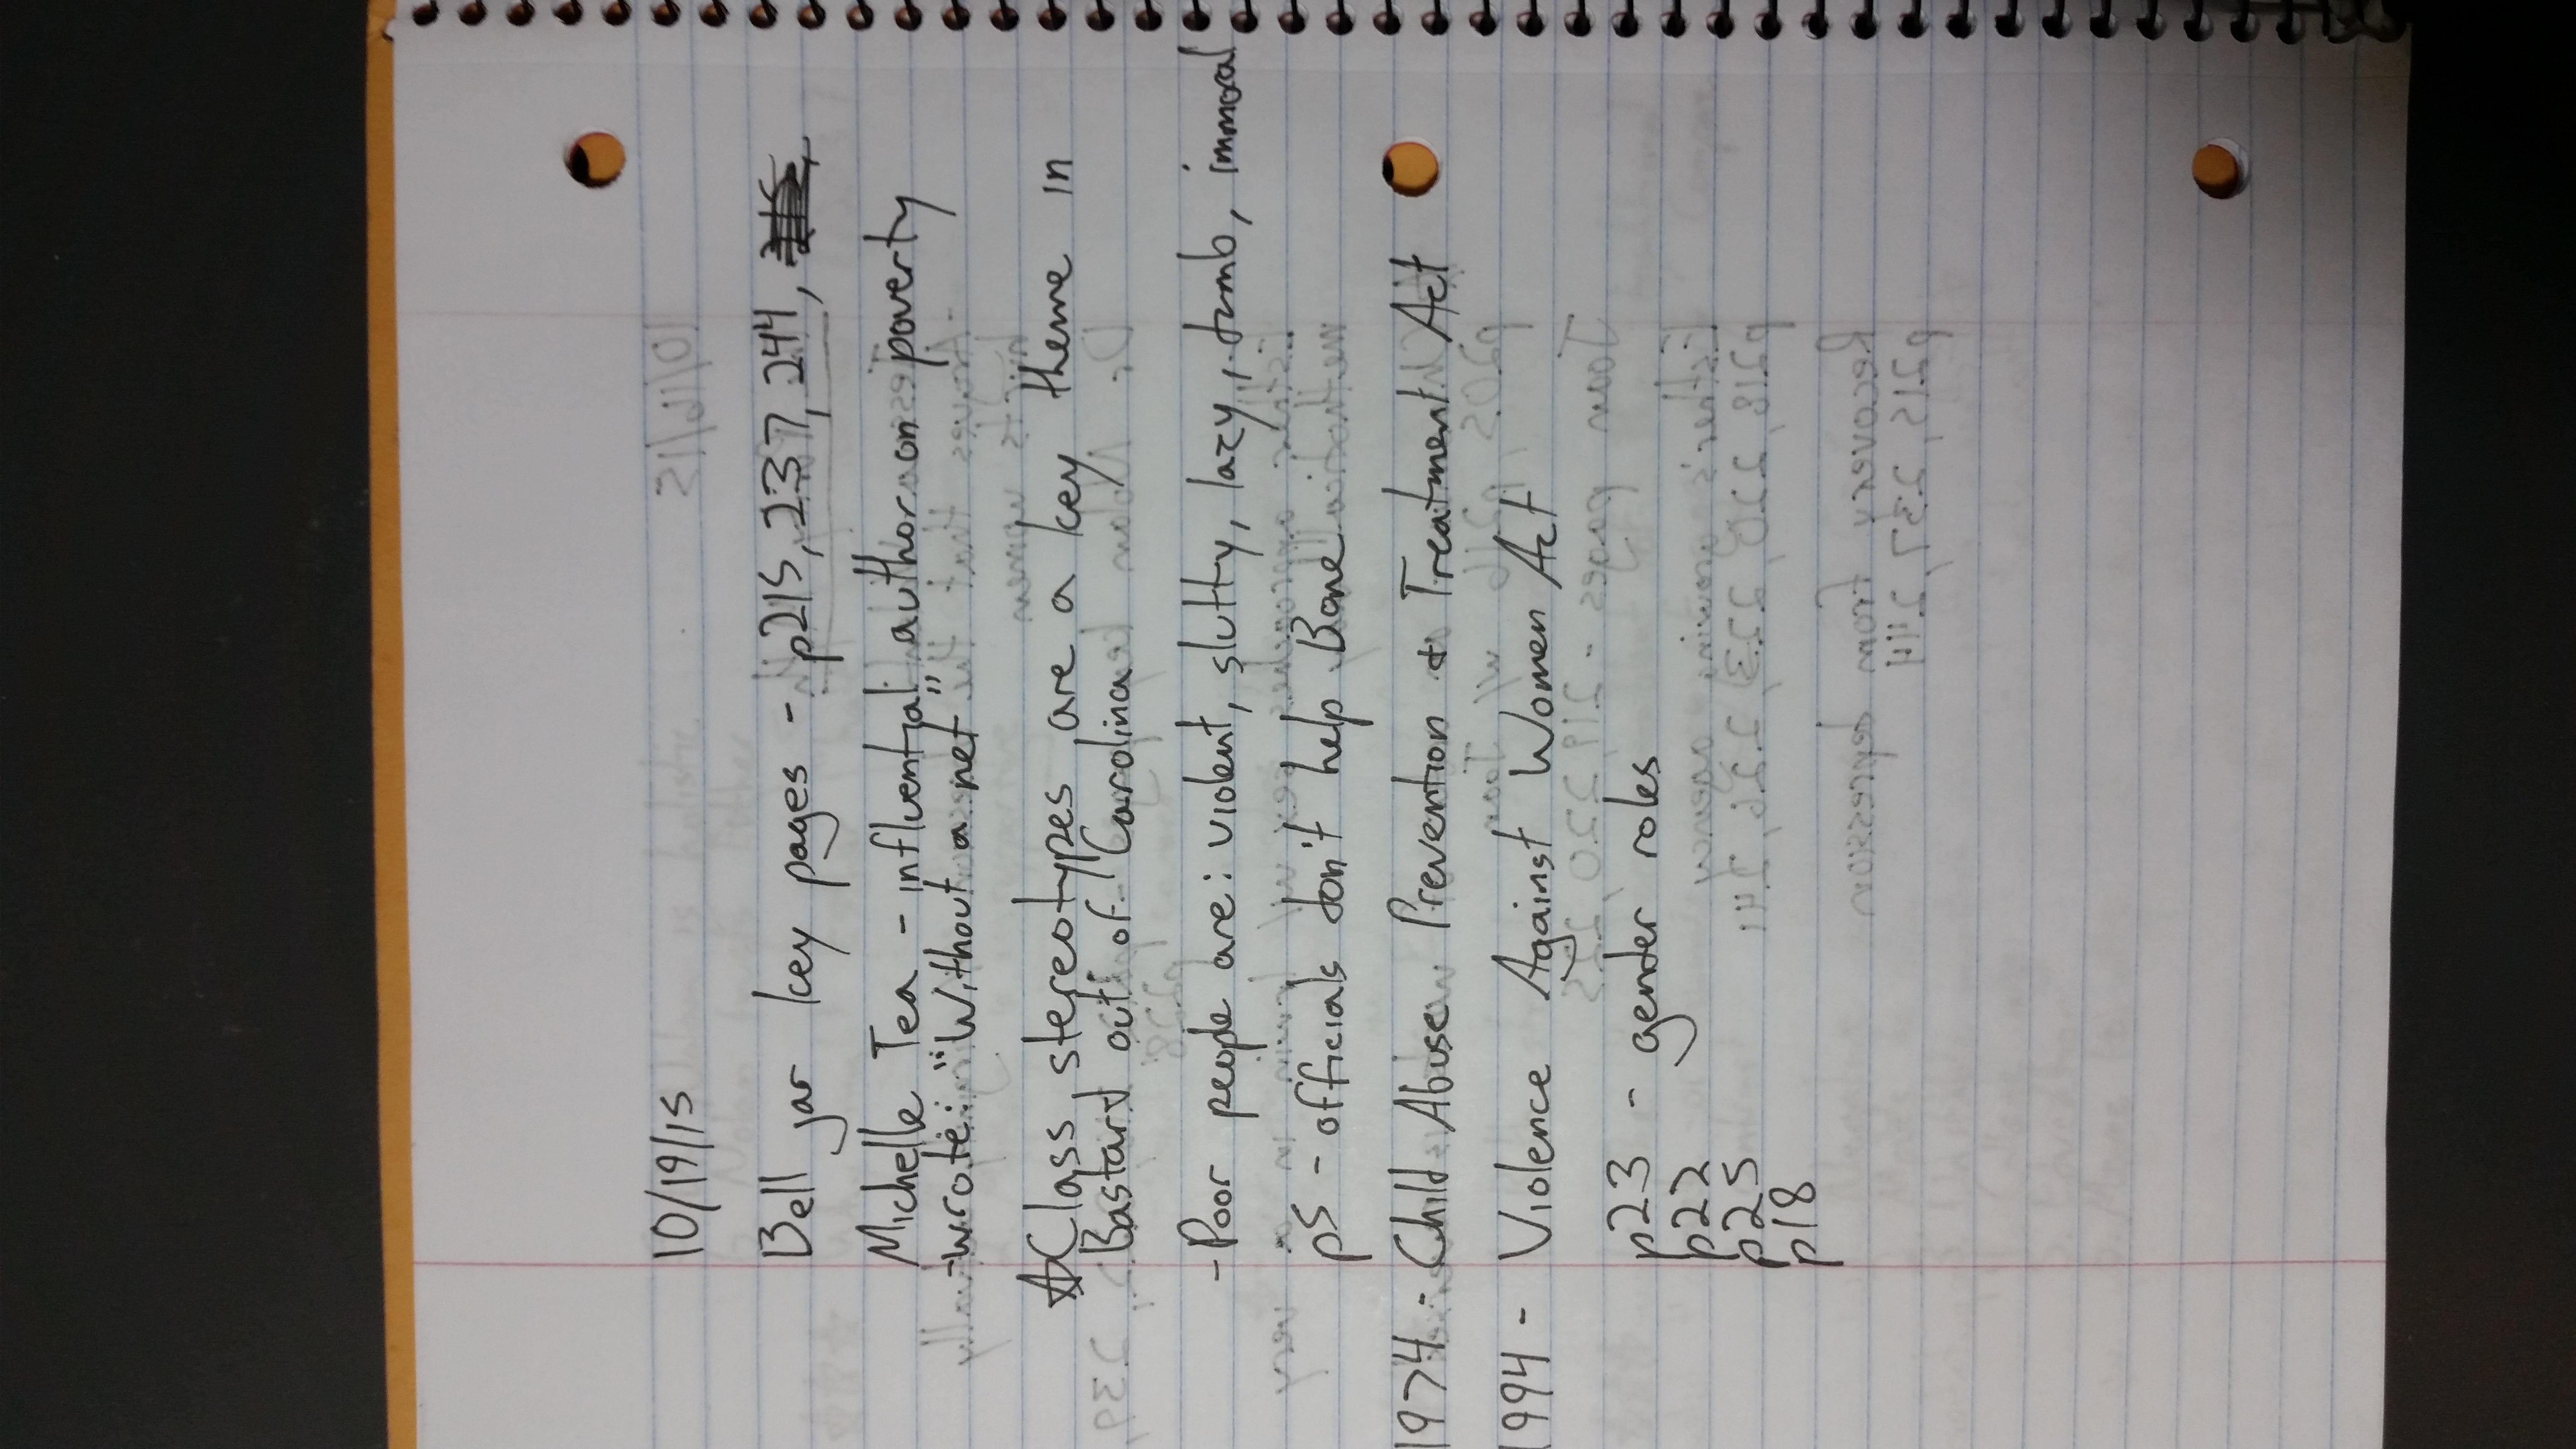 10/19/15
Bell jar key pages - p215, 237, 244,
Michelle Tea - influential author on poverty
- wrote: "Without a net"
☆ Class stereotypes are a key theme in
Bastard out of Carolina
- Poor people are: violent, slutty, lazy, dumb, immoral
p5 - officials don't help Bone
1974 - Child Abuse Prevention & Treatment Act
1994 - Violence Against Women Act
p23 - gender roles
p22
p25
p18